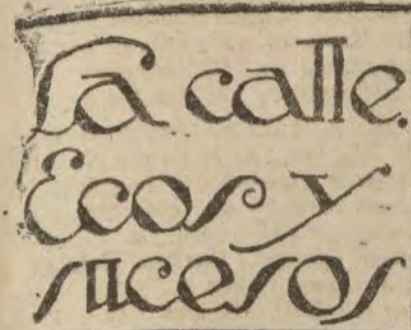 La calle.
Ecos y
sucesos